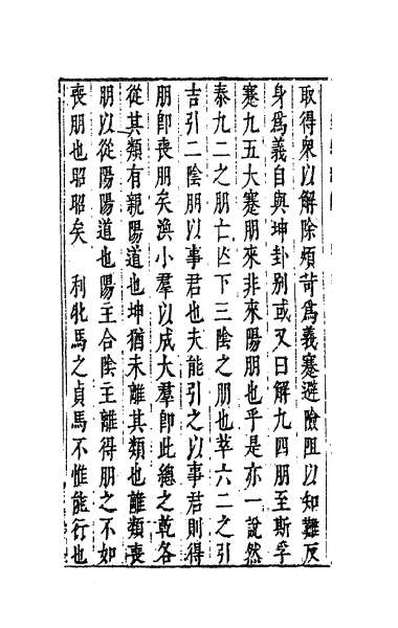 取得衆以解除煩苛爲義蹇避險阻以知難反
身爲義自與坤卦别或又曰解九四朋至斯孚
蹇九五大蹇朋來非來陽朋也乎是亦一說然
泰九二之朋亡亡下三陰之朋也萃六二之引
吉引二陰朋以事君也夫能引之以事君則得
朋即喪朋矣渙小羣以成大羣即此總之乾各
從其類有親陽道也坤猶未離其類也離類喪
朋以從陽陽道也陽主合陰主離得朋之不如
喪朋也昭昭矣　利牝馬之貞馬不惟能行也